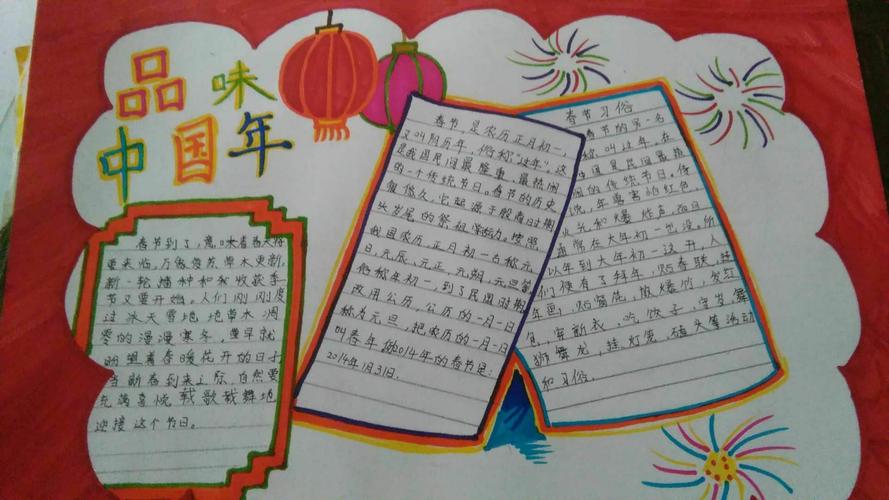 品味
中国年
春节到了，意味着春天将
要来临，万象复苏草木更新，
新一轮播种和收获季
节又要开始。人们刚刚度
过冰天雪地草木凋
零的漫漫寒冬，早就
盼望着春暖花开的日子
当新春到来之际，自然要
充满喜悦载歌载舞地
迎接这个节日。
春节，是农历正月初一，
又叫阴历年，俗称"过年"。这
是我国民间最隆重、最热闹
的一个传统节日。春节的历史
很悠久，它起源于殷商时期
年头岁尾的祭祖活动。按照
我国农历，正月初一古称元
日、元辰、元正、元朔、元旦等
俗称年初一，到了民国时期
改用公历，公历的一月一日
称为元旦，把农历的一月一日
叫春年 2014年的春节是：
2014年1月31日.
春节习俗
春节的另一名
称叫过年。在
中国民间最热
闹的传统节日。传
说，年害怕红色、
火光和爆炸声，而且
通常在大年初一出没。所
以年到大年初一这开，人
们便有了拜年，贴春联，挂
年画，贴窗花，放爆竹，发红
包，穿新衣，吃饺子，守岁，舞
狮舞龙，挂灯笼，磕头等活动
和习俗。